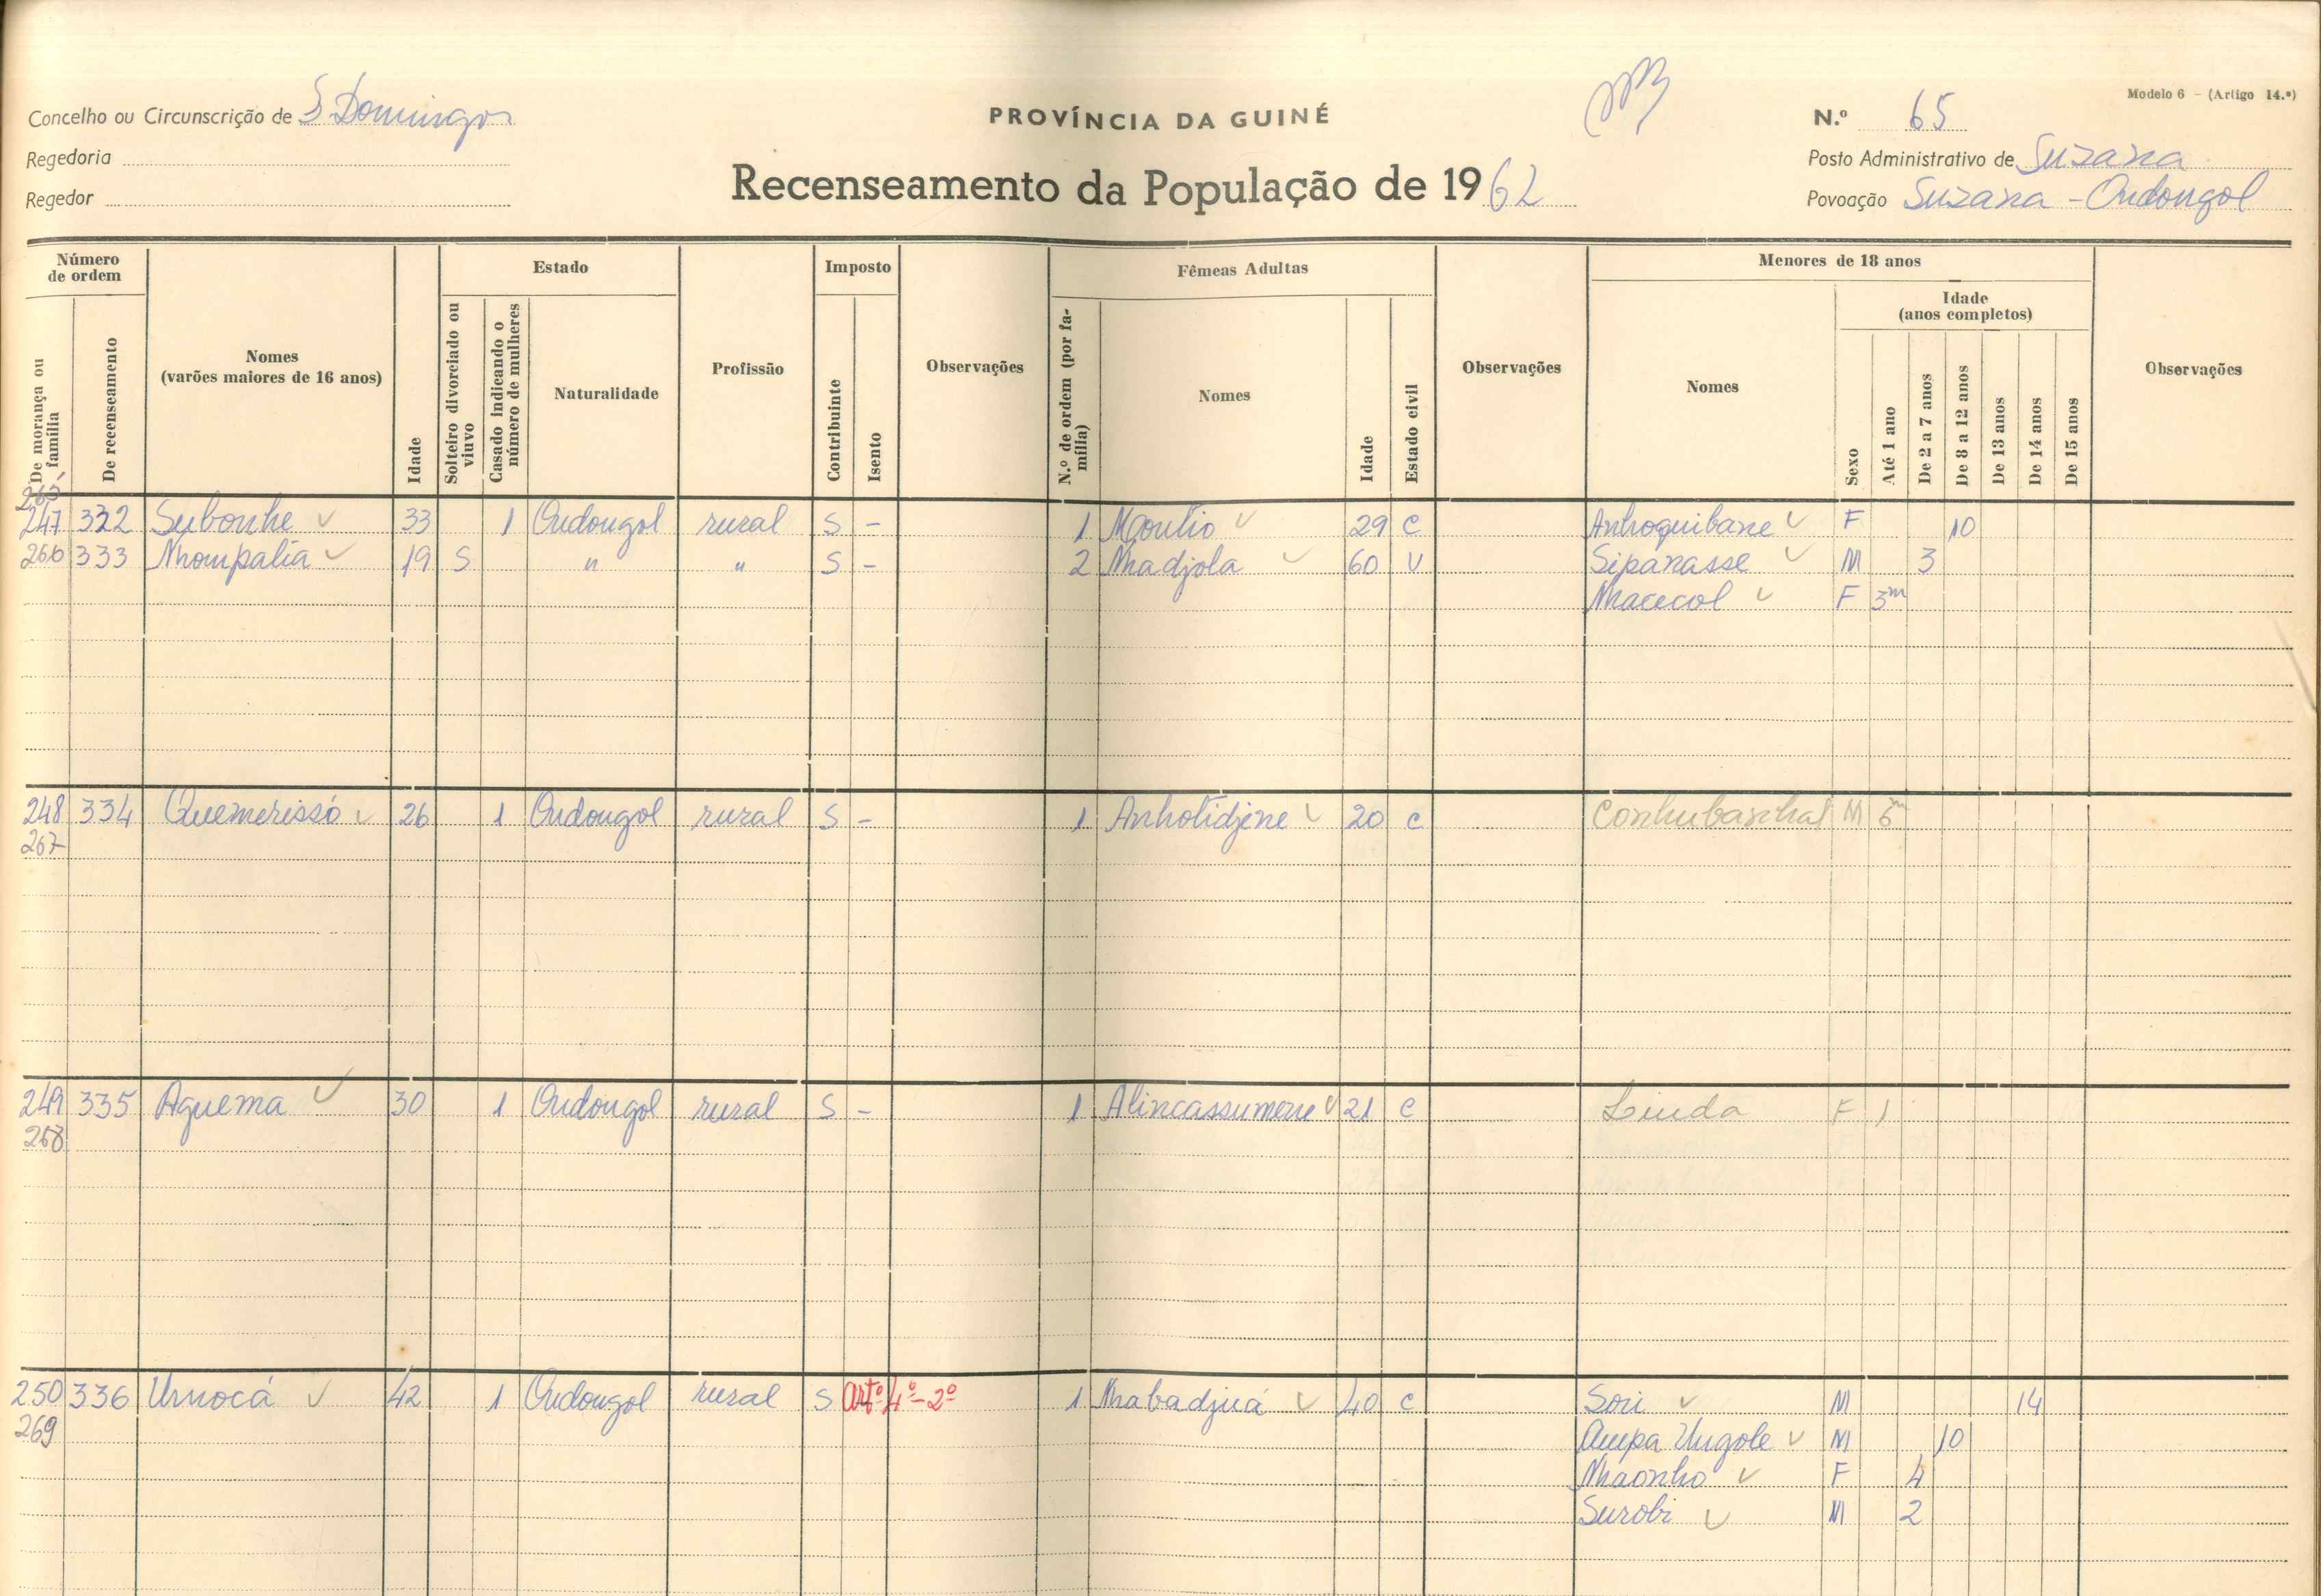 Modelo 6 - (Artigo 14.º)
Concelho ou Circunscrição de S Domingos
PROVÍNCIA DA GUINÉ
N.º 65
Regedoria
Posto Administrativo de Suzana
Regedor
Recenseamento da População de 1962
Povoação Suzana - Oudongol
Número de ordem
Estado
Imposto
Fêmeas Adultas
Menores de 18 anos
Idade (anos completos)
De morança ou família
De recenseamento
Nomes (varões maiores de 16 anos)
Idade
Solteiro divorciado ou viuvo
Casado indicando o número de mulheres
Naturalidade
Profissão
Contribuinte
Isento
Observações
N.º de ordem (por família)
Nomes
Idade
Estado civil
Observações
Nomes
Sexo
Até 1 ano
De 2 a 7 anos
De 8 a 12 anos
De 13 anos
De 14 anos
De 15 anos
Observações
265
247 322 Subonhe 33 1 Oudongol rural S - 1 Moulio 29 C Anhoquibane F 10
266 333 Nhompalia 19 S " " S - 2 Nhadjola 60 V Sipanasse M 3
Nhacecol F 3m
248 334 Quemerissó 26 1 Oudongol rural S - 1 Anhotidjene 20 C Conhubanhal M 6m
267
249 335 Aguema 30 1 Oudongol rural S - 1 Alincassumene 21 C Linda F 1
268
250 336 Urnocá 42 1 Oudongol rural S artº 4º-2º 1 Nhabadjuá 40 C Sori M 14
269 Ampa Ungole M 10
Nhaonho F 4
Surobi M 2